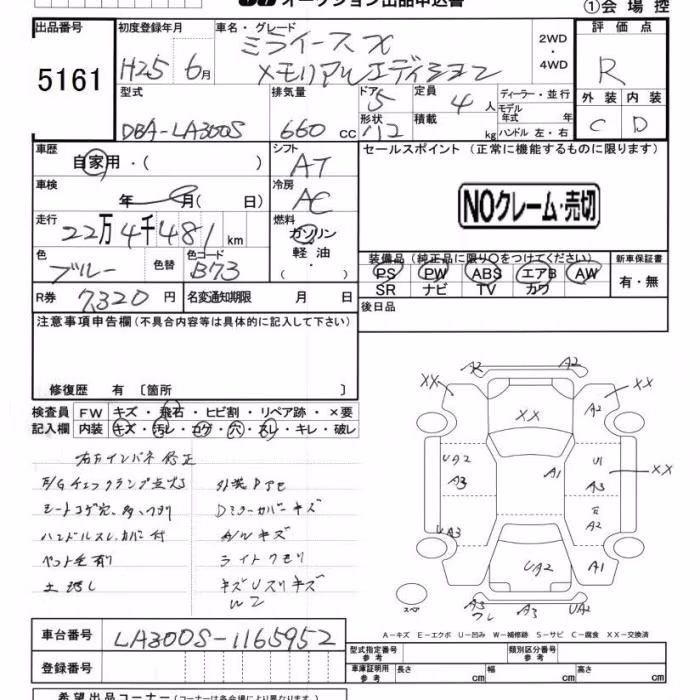 オークション出品申込書
①会場控
出品番号 初度登録年月 車名・グレード 評価点
5161 H25 6月 ミライース X メモリアルエディション 2WD・4WD R
型式 排気量 ドア 定員 ディーラー・並行 外装 内装
DBA-LA300S 660 cc 5 4人 モデル年式 年 C D
形状 積載 kg ハンドル 左・右
車歴 自家用・( ) シフト AT セールスポイント (正常に機能するものに限ります)
車検 年 月( 日) 冷房 AC NOクレーム・売切
走行 22万4千481km 燃料 ガソリン 軽油・( )
色 ブルー 色替 色コード B73
装備品(純正品に限り○をつけてください) 新車保証書
PS PW ABS エアB AW 有・無
SR ナビ TV カワ
R券 7,320円 名変通知期限 月 日 後日品
注意事項申告欄(不具合内容等は具体的に記入して下さい)
修復歴 有〔箇所 〕
検査員 FW キズ・飛石・ヒビ割・リペア跡・×要
記入欄 内装 キズ・汚レ・コゲ・穴・スレ・キレ・破レ
E/Gチェックランプ点灯
Dミラーカバーキズ
ハンドルスレ、カバー付 A/Wキズ
ペット毛有り ライトクモリ
キズUスリキズ
W2
A2 A2
XX XX
XX A2
UA2 A1 U1 XX
A3 A3
A2
UA3
UA2 A1
スペア A3 ワレ A3 UA2
A-キズ E-エクボ U-凹み W-補修跡 S-サビ C-腐食 XX-交換済
車台番号 LA300S-1165952
型式指定番号 参考 類別区分番号 参考
登録番号
車庫証明用 参考 長さ cm 幅 cm 高さ cm
希望出品コーナー(コーナーは各会場により異なります)